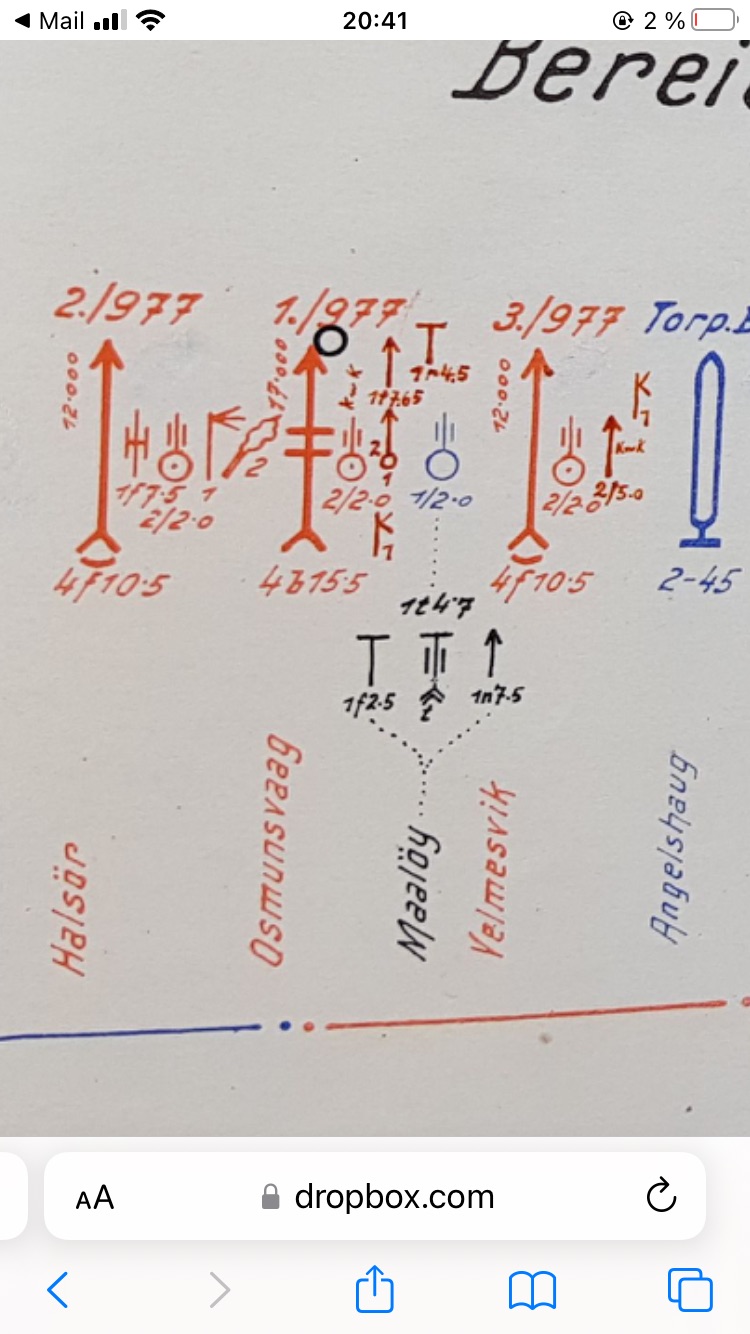 Mail
20:41
2 %
Berei
2./977
1./977
3./977
Torp.B
12.000
17.000
12.000
1n4.5
1f7.65
K
1
K~K
1f7.5
1
2
2
1
2/2.0
2/2.0
1/2.0
2/2.0
2/5.0
K
1
4f10.5
4b15.5
4f10.5
2-45
1t4.7
1f2.5
t
1n7.5
Halsör
Osmunsvaag
Maalöy
Velmesvik
Angelshaug
AA
dropbox.com